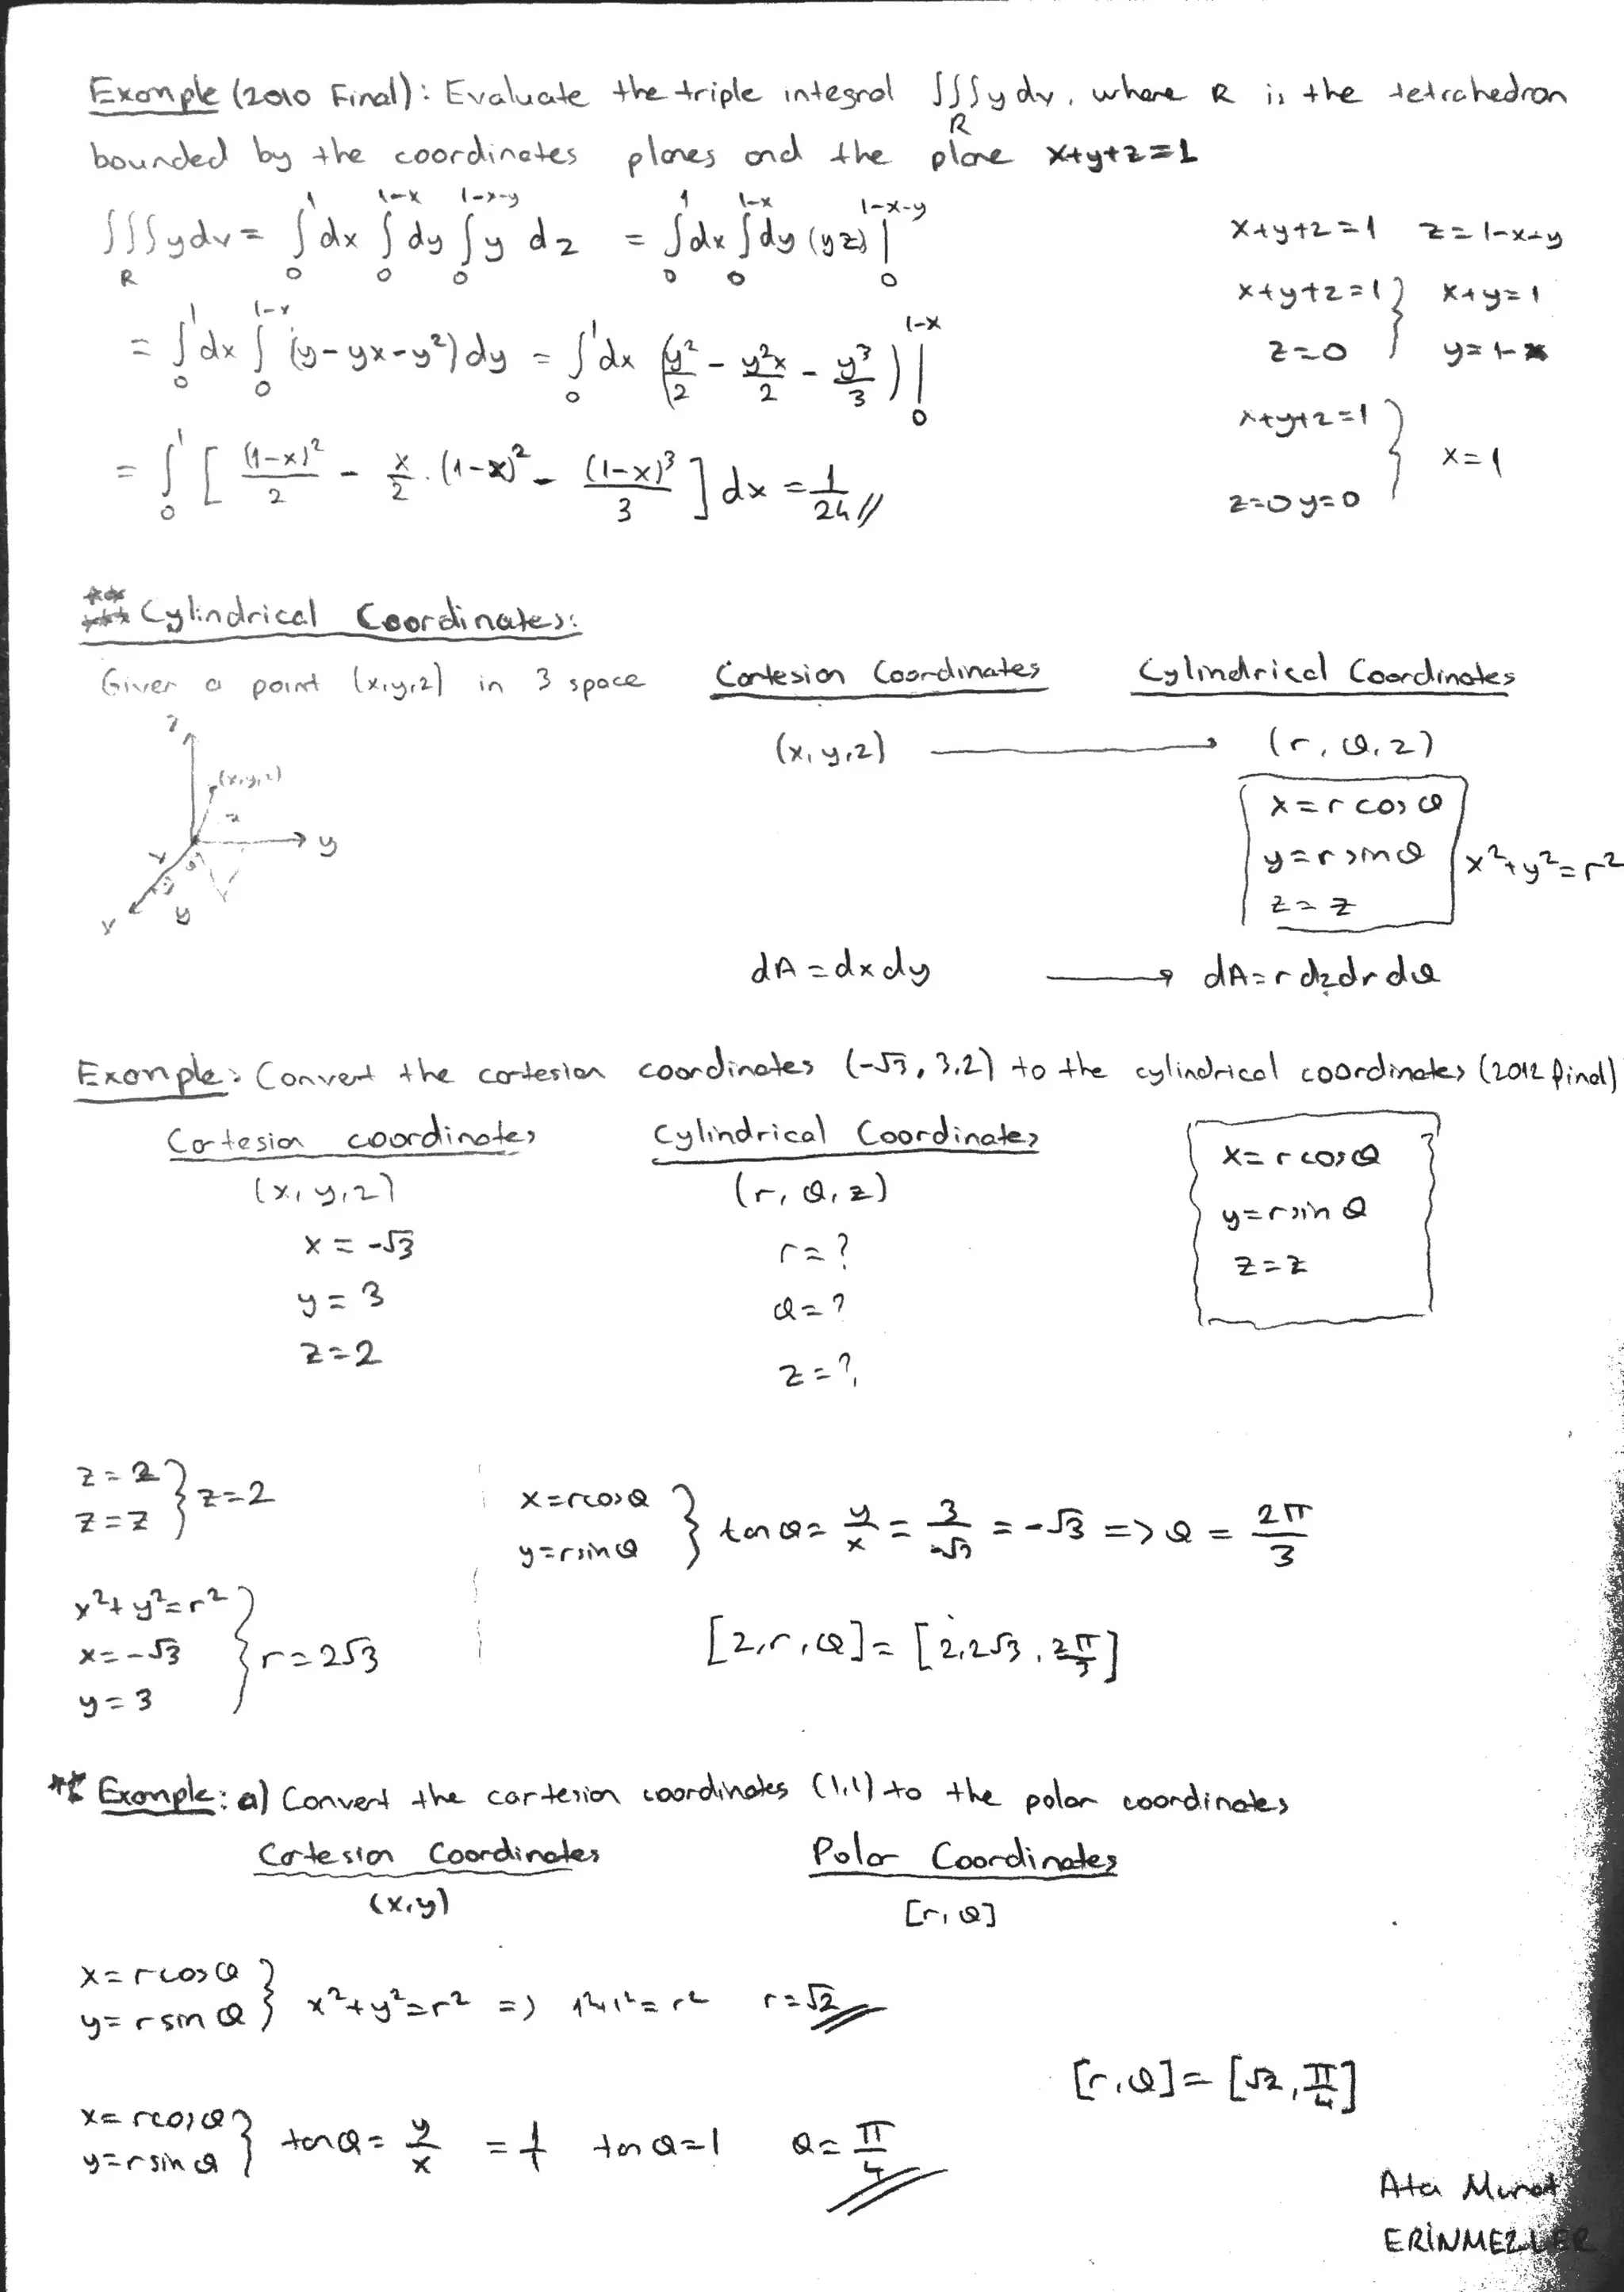 Example (2010 Final): Evaluate the triple integral ∭_R y dv, where R is the tetrahedron
bounded by the coordinates planes and the plane x+y+z=1
∭_R y dv = ∫_0^1 dx ∫_0^{1-x} dy ∫_0^{1-x-y} y dz = ∫_0^1 dx ∫_0^{1-x} dy (yz)|_0^{1-x-y}
x+y+z=1 z=1-x-y
= ∫_0^1 dx ∫_0^{1-x} (y-yx-y²) dy = ∫_0^1 dx (y²/2 - y²x/2 - y³/3)|_0^{1-x}
x+y+z=1 } x+y=1
z=0 y=1-x
= ∫_0^1 [ (1-x)²/2 - x/2 . (1-x)² - (1-x)³/3 ] dx = 1/24 //
x+y+z=1 } x=1
z=0 y=0
*** Cylindrical Coordinates:
Given a point (x,y,z) in 3 space
Cartesian Coordinates Cylindrical Coordinates
(x,y,z) → (r,θ,z)
z
(x,y,z)
z
y
x
y
x
x=r cosθ
y=r sinθ x²+y²=r²
z=z
dA=dxdy → dA=r dzdrdθ
Example: Convert the cartesian coordinates (-√3, 3,2) to the cylindrical coordinates (2012 final)
Cartesian coordinates Cylindrical Coordinates
(x,y,z) (r,θ,z)
x=-√3 r=?
y=3 θ=?
z=2 z=?
x=r cosθ
y=rsinθ
z=z
z=2
z=z } z=2
x=rcosθ
y=rsinθ } tanθ= y/x = 3/-√3 = -√3 => θ = 2π/3
x²+y²=r²
x=-√3 } r=2√3
y=3
[z,r,θ]=[2,2√3,2π/3]
** Example: a) Convert the cartesian coordinates (1,1) to the polar coordinates
Cartesian Coordinates Polar Coordinates
(x,y) [r,θ]
x=rcosθ
y=rsinθ } x²+y²=r² => 1²+1²=r² r=√2
[r,θ]=[√2,π/4]
x=rcosθ
y=rsinθ } tanθ= y/x = 1/1 tanθ=1 θ=π/4
Ata Murat
ERİNMEZLER